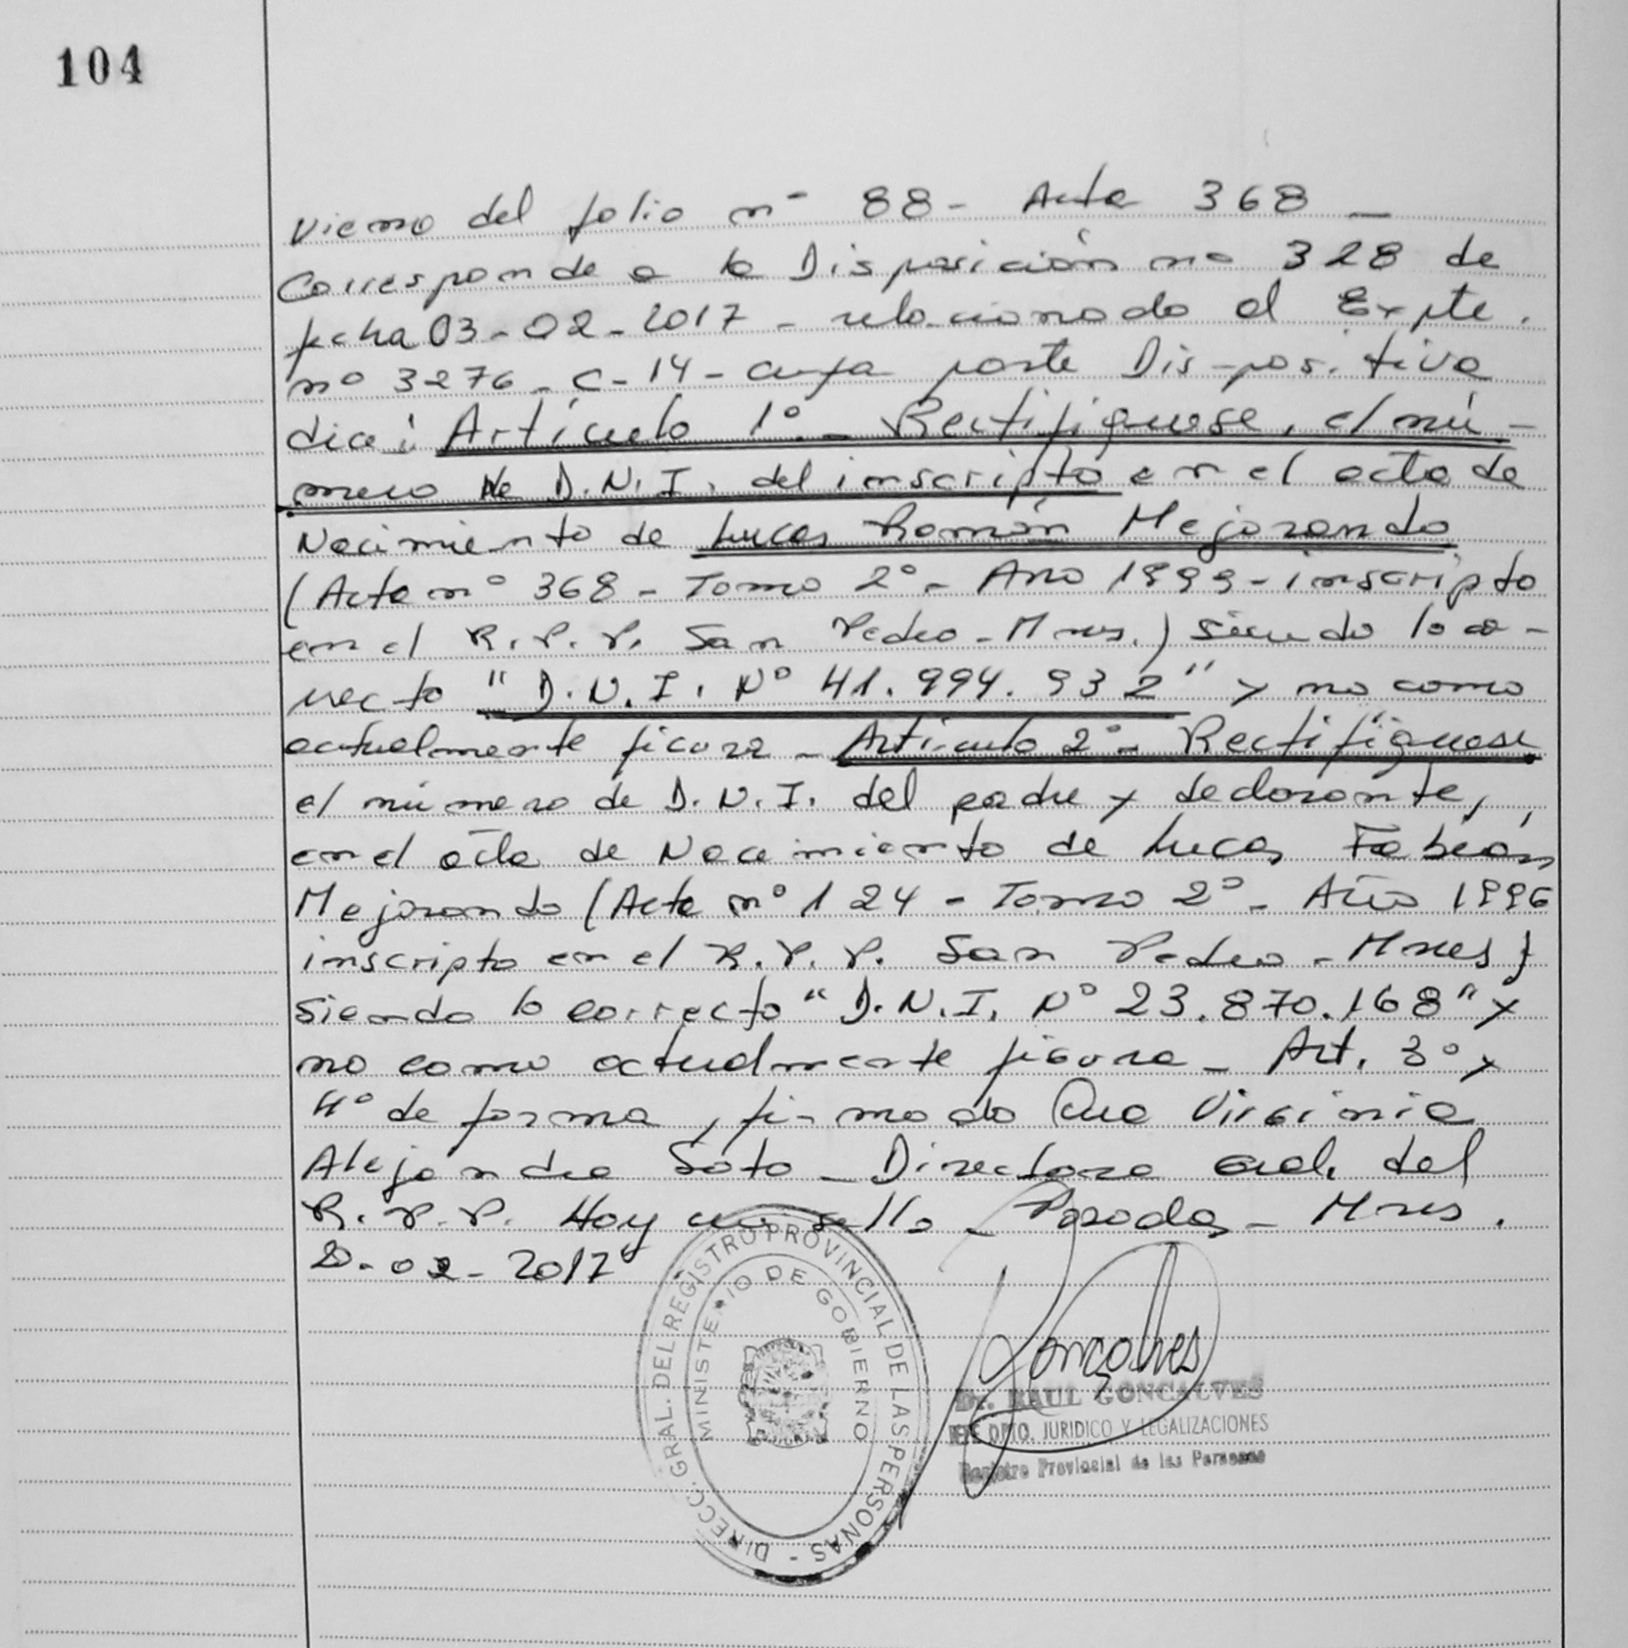 104
Viene del folio nº 88 - Acta 368 -
Corresponde a la Disposición nº 328 de
fecha 03-02-2017 - relacionado al Expte.
nº 3276 - C-14 - cuya parte Dis-positiva
dice: Artículo 1º - Rectifíquese, el nú-
mero de D.N.I. del inscripto en el acta de
Nacimiento de Lucas Román Mejorando
(Acta nº 368 - Tomo 2º - Año 1999 - inscripto
en el R.P.P. San Pedro - Mnes.) siendo lo co-
rrecto "D.N.I. Nº 41.994.932" y no como
actualmente figura - Artículo 2º - Rectifíquese
el número de D.N.I. del padre y declarante,
en el acta de Nacimiento de Lucas Fabián
Mejorando (Acta nº 124 - Tomo 2º - Año 1996
inscripto en el R.P.P. San Pedro - Mnes)
siendo lo correcto "D.N.I. Nº 23.870.168" y
no como actualmente figura - Art. 3º y
4º de forma, firmado Virginia
Alejandra Soto - Directora Gral. del
R.P.P. Hay un sello - Posadas - Mnes.
-02-2017
DIRECC. GRAL. DEL REGISTRO PROVINCIAL DE LAS PERSONAS -
MINISTERIO DE GOBIERNO
Gonçalves
Dr. RAUL GONCALVES
JEFE DPTO. JURIDICO Y LEGALIZACIONES
Registro Provincial de las Personas